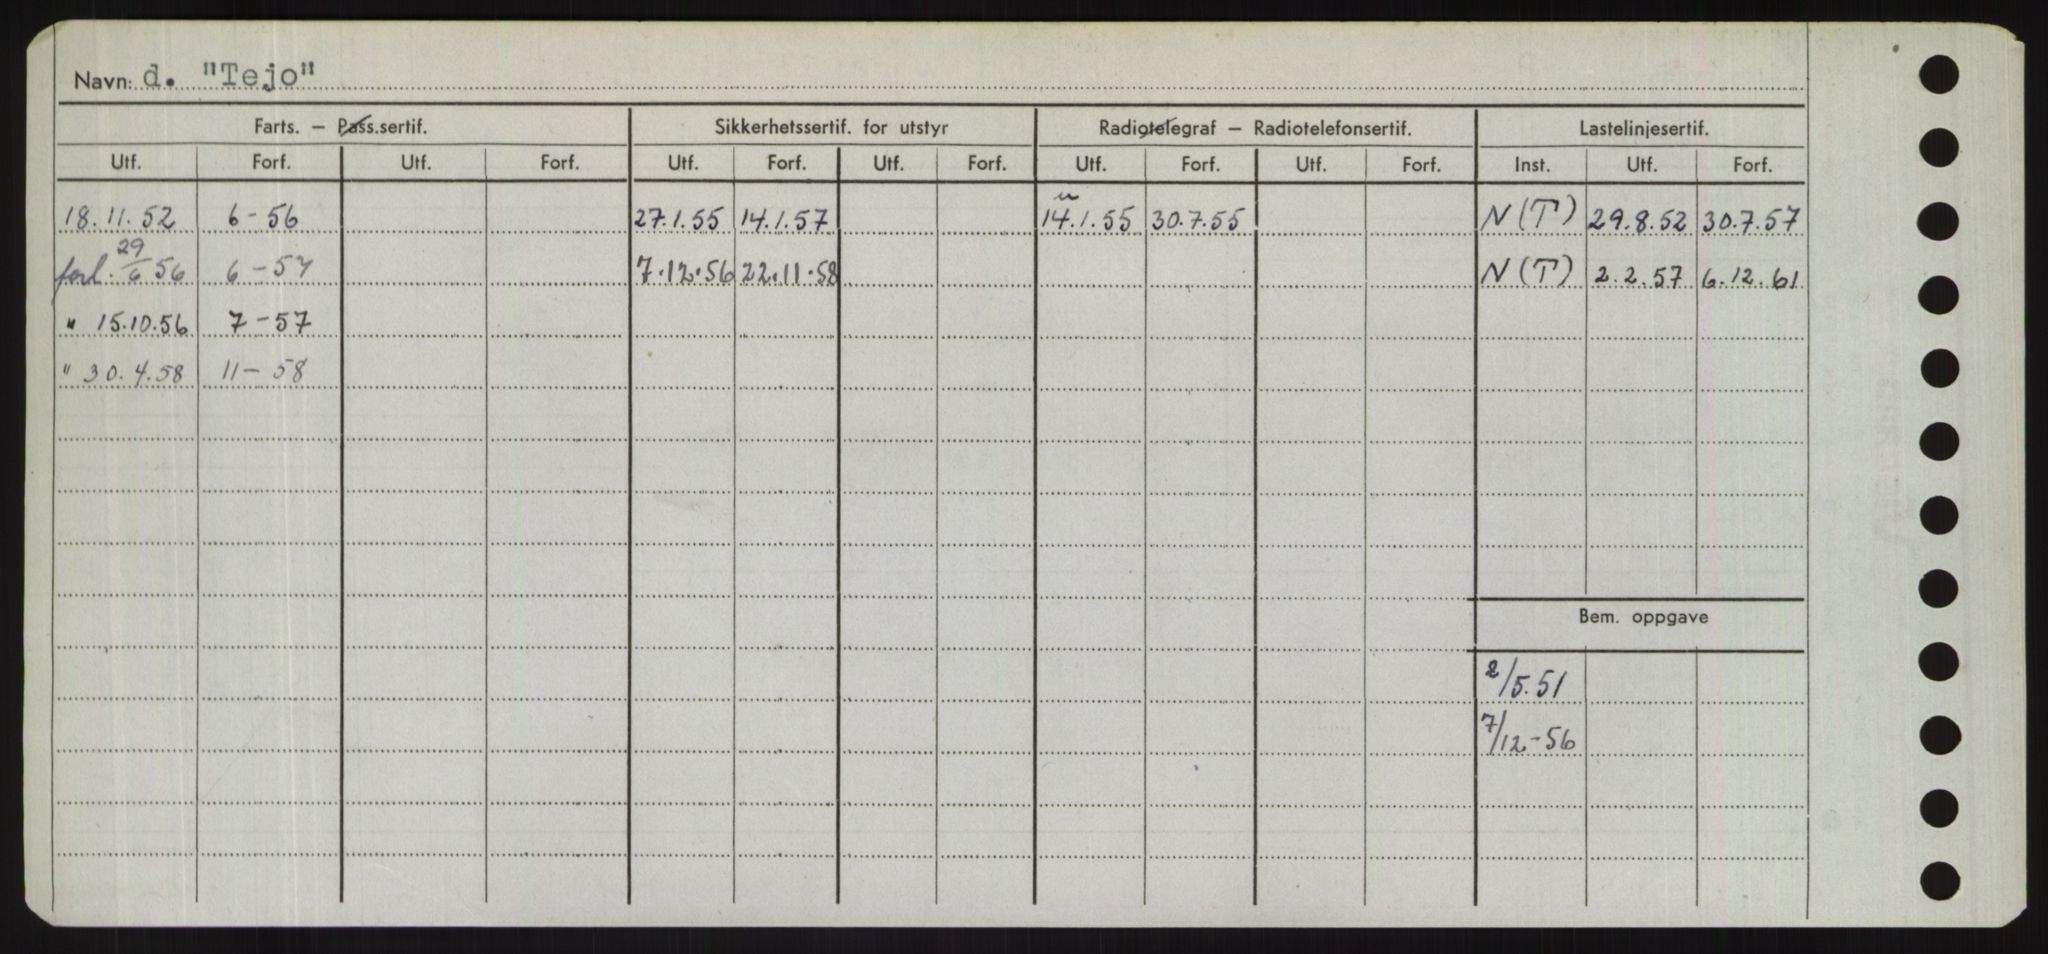 Navn: d. "Tejo"
Farts. – Pass.sertif. Sikkerhetssertif. for utstyr Radiotelegraf – Radiotelefonsertif. Lastelinjesertif.
Utf. Forf. Utf. Forf. Utf. Forf. Utf. Forf. Utf. Forf. Utf. Forf. Inst. Utf. Forf.
18.11.52 6-56 27.1.55 14.1.57 u 14.1.55 30.7.55 N(T) 29.8.52 30.7.57
forl. 29/6 56 6-57 7.12.56 22.11.58 N(T) 2.2.57 6.12.61
" 15.10.56 7-57
" 30.4.58 11-58
Bem. oppgave
2/5.51
7/12-56